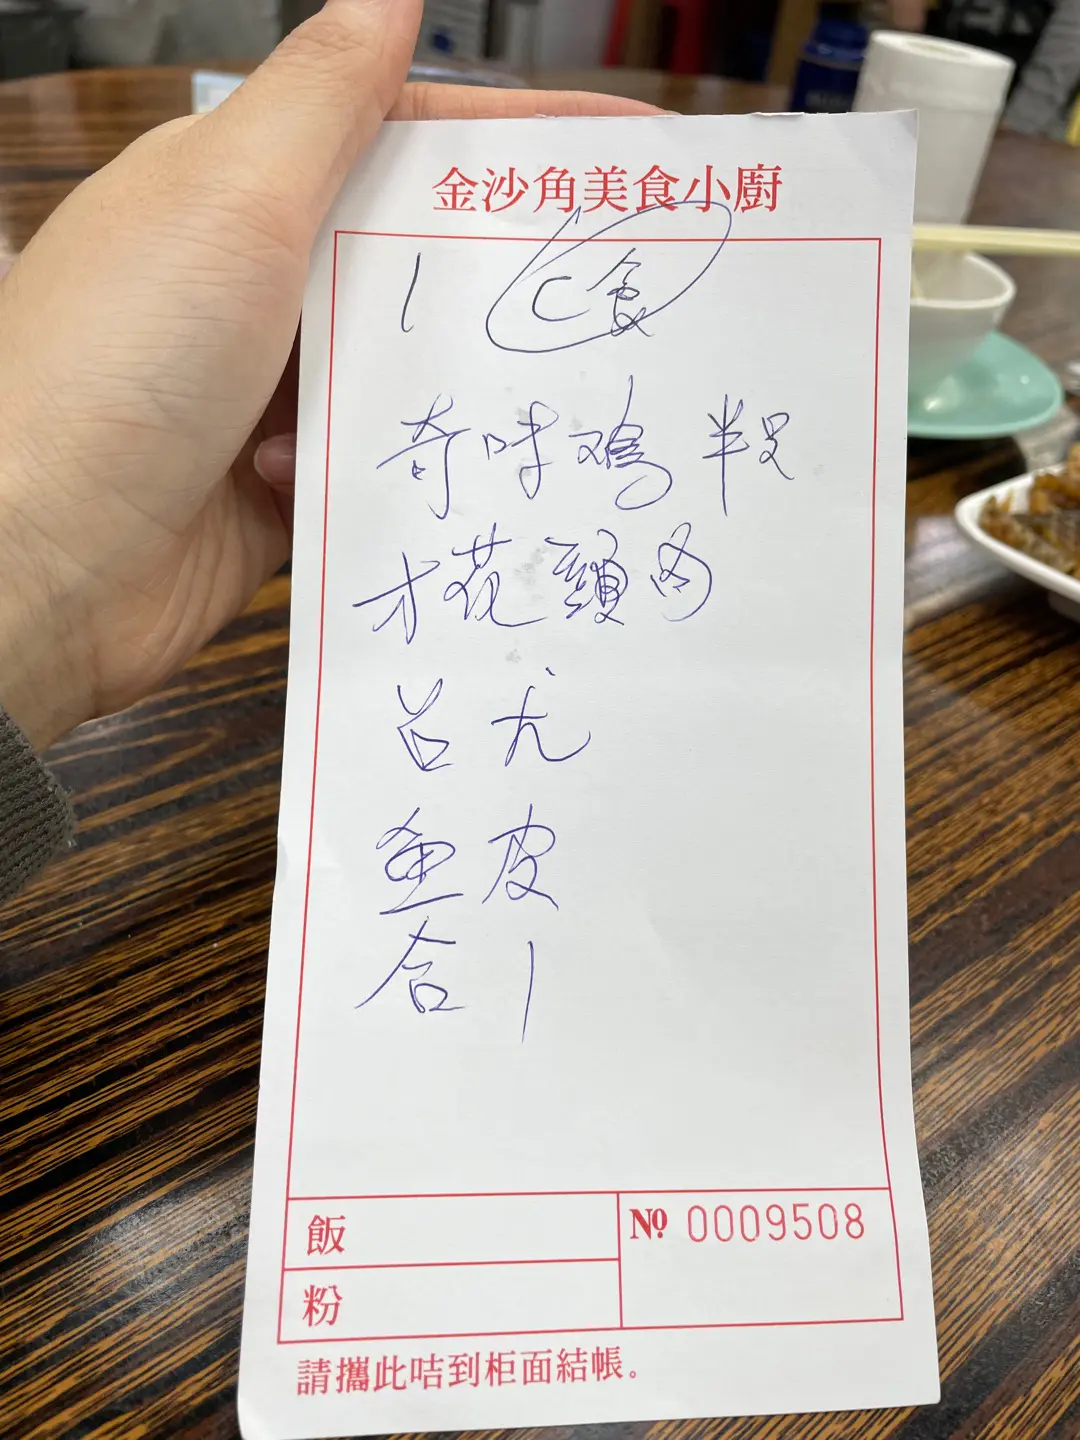 金沙角美食小廚
1 C食
奇味鸡 半只
才花頭肉
吕尤
鱼皮
合 1
飯
粉
№ 0009508
請攜此咭到柜面結帳。